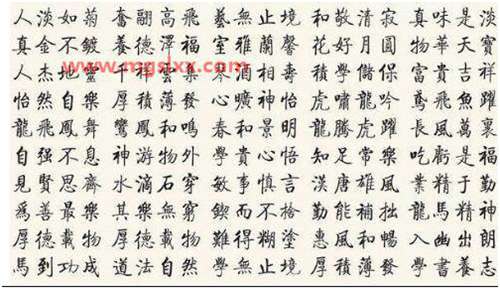 人淡如菊 奮翮高飛 藝無止境 和敬清寂 真味是淡
真金不鍍 養德澤福 室雅蘭馨 花好月圓 物華天寶
www.mgslxx.com
人杰地靈 千 雲集 壽 學 保 富貴吉祥
怡然自樂 厚積薄發 心曠神怡 虎嘯龍吟 鳶飛魚躍
龍飛鳳舞 鸞鳳和鳴 春和景明 龍騰虎躍 長風萬裏
自强不息 神游物外 學貴心悟 知足常樂 吃虧是福
見賢思齊 水滴石穿 敏事慎言 漢唐雄風 業精于勤
爲善最樂 其樂無窮 鍥而不捨 勤能補拙 龍馬精神
厚德載物 厚德載物 難得糊塗 惠風和暢 入幽出朗
馬到功成 道法自然 學無止境 厚積薄發 學書養志